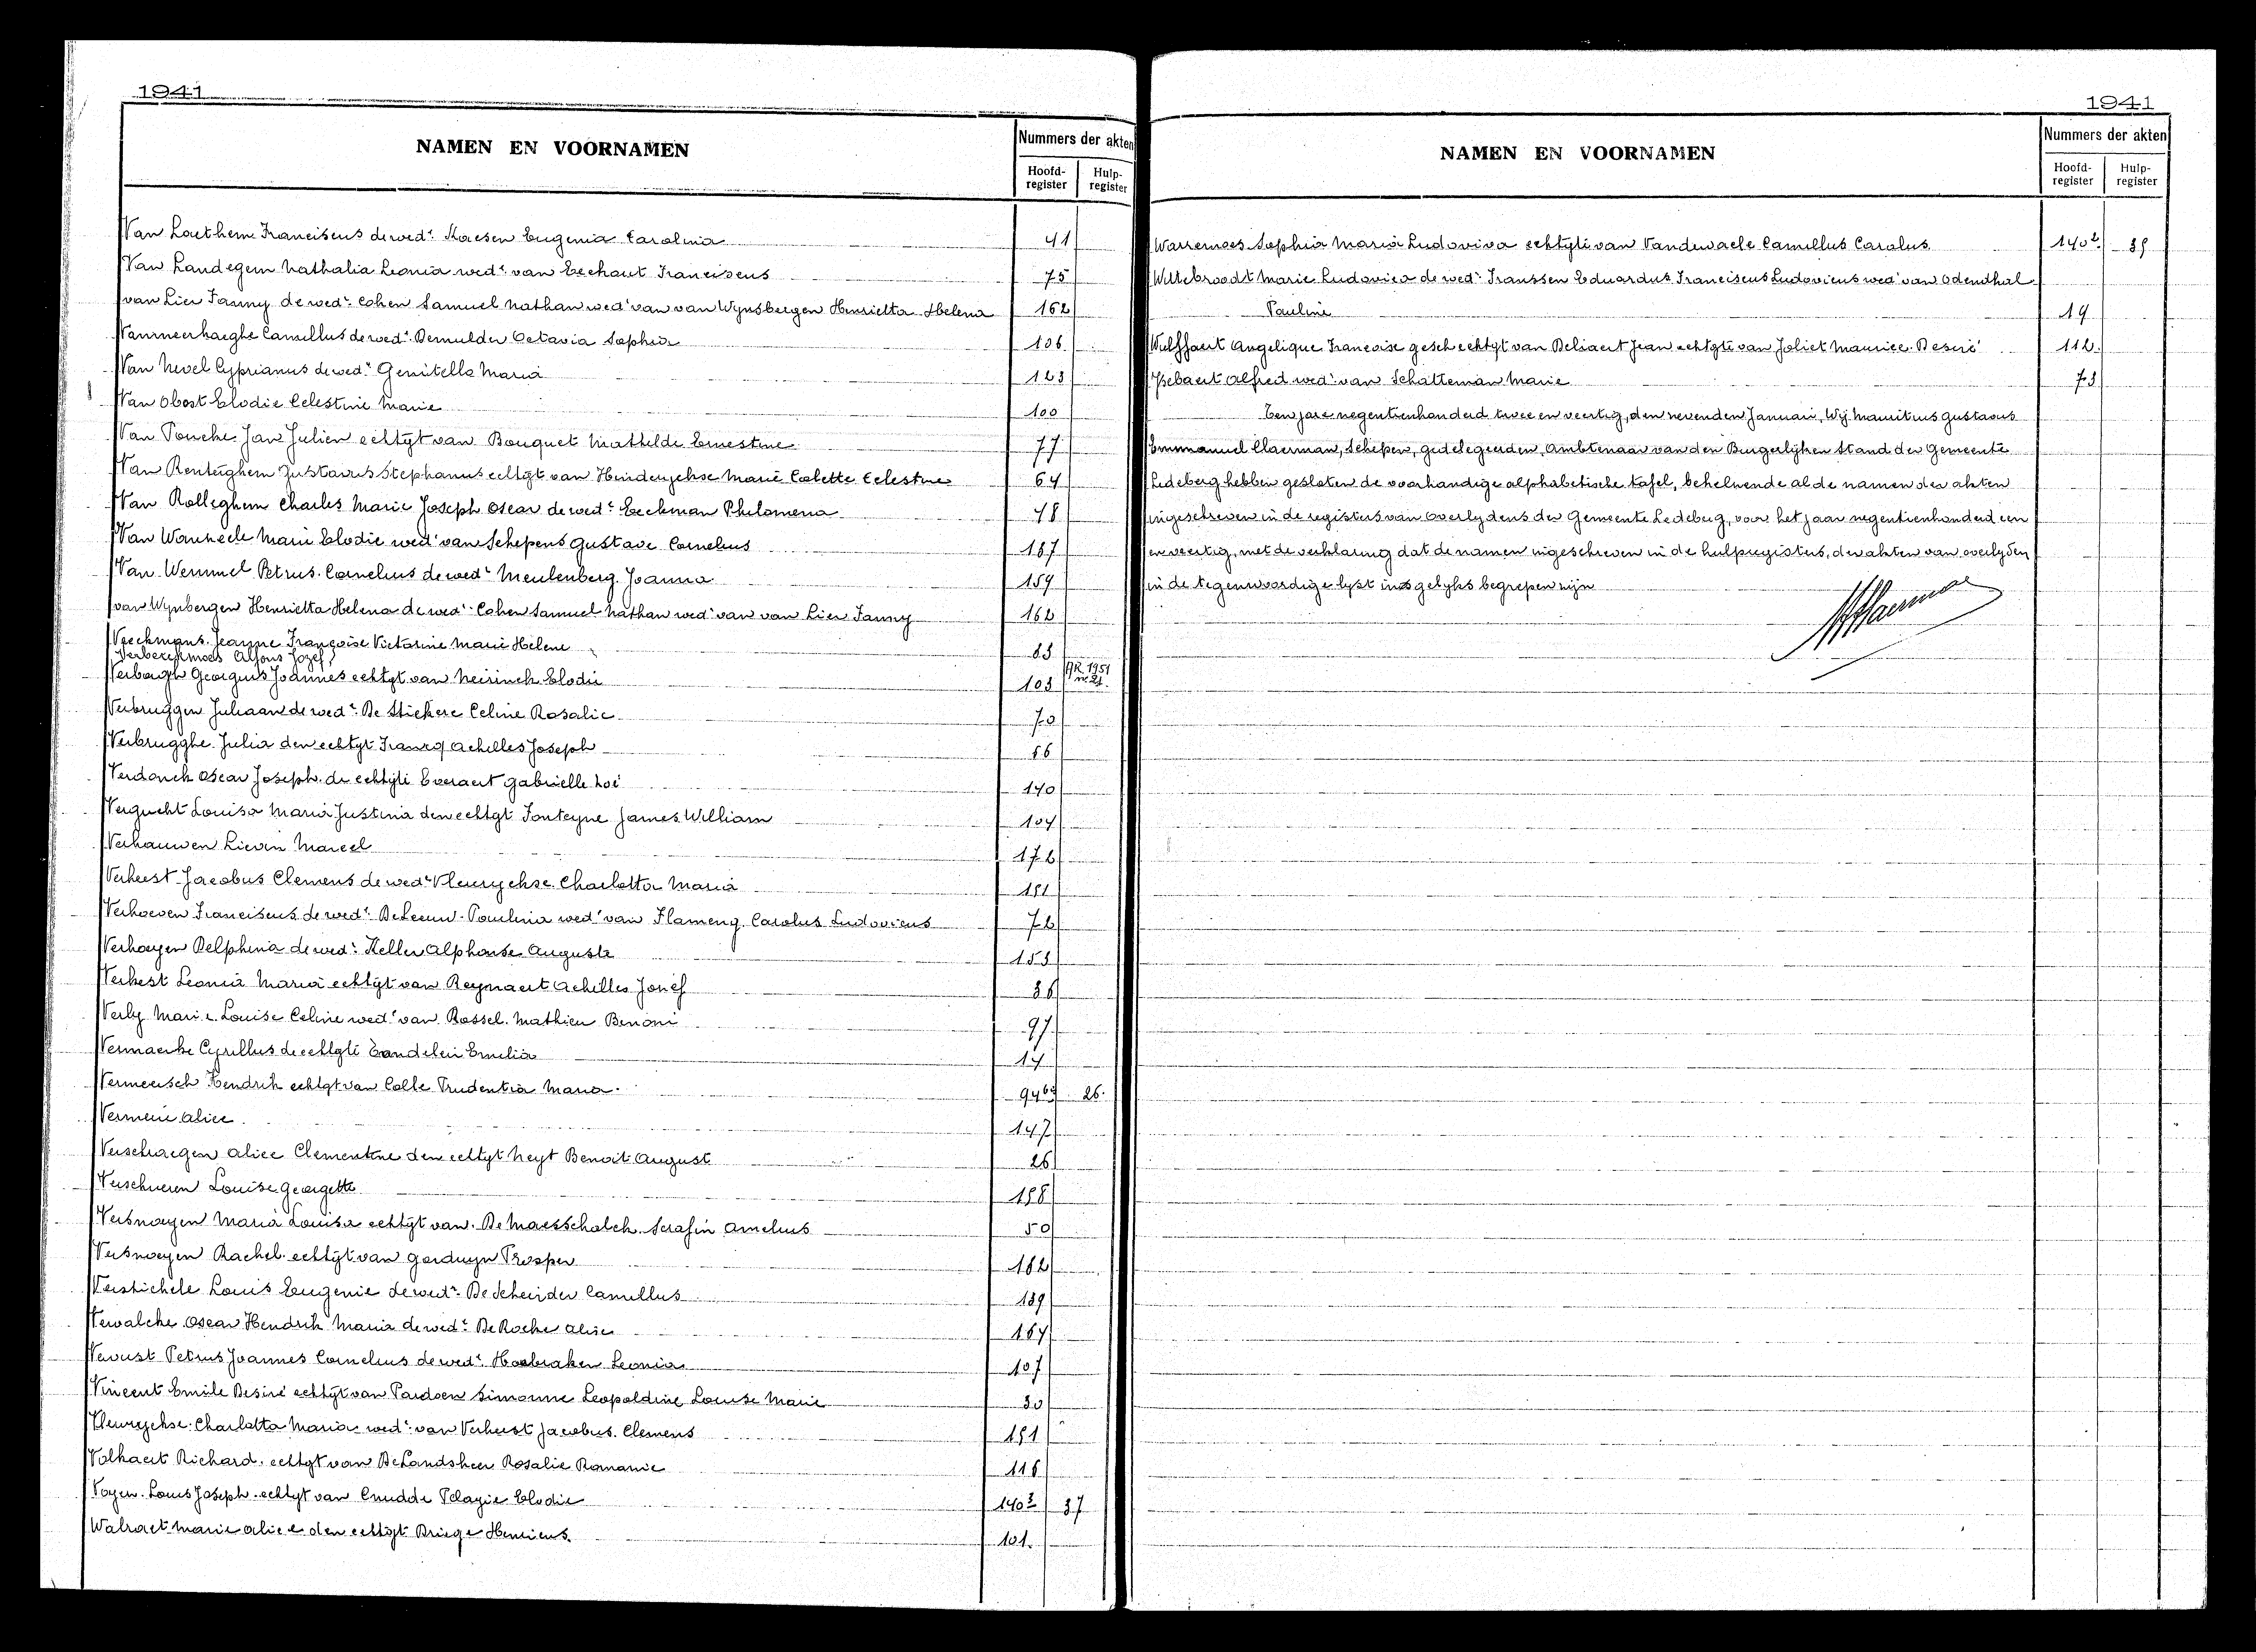 1941
NAMEN EN VOORNAMEN
Nummers der akten
Hoofd-register
Hulp-register
Van Laethem Franciscus de wede Maesen Eugenia Carolina 41
Van Landegem Nathalia Leonia wede van Eechaut Franciscus 75
van Lier Fanny de wede Cohen Samuel Nathan wede van van Wynsbergen Henrietta Helena 162
Vanmeerhaeghe Camillus de wede Demulder Octavia Sophia 106
Van Nevel Cyprianus de wede Genitello Maria 123
Van Obost Elodie Celestine Marie 100
Van Poucke Jan Julien echtgt van Bouquet Mathilde Ernestine 77
Van Renterghem Gustavus Stephanus echtgt van Hinderyckse Marie Colette Celestine 64
Van Rolleghem Charles Marie Joseph Oscar de wede Eeckman Philomena 48
Van Wanzeele Marie Elodie wede van Schepens Gustave Cornelius 187
Van Wemmel Petrus Cornelius de wede Meulenberg Joanna 159
van Wynbergen Henrietta Helena de wede Cohen Samuel Nathan wede van van Lier Fanny 162
Veeckmans Jeanne Françoise Victorine Marie Helene 83
Verberckmoes Alfons Jozef AR. 1951 nr 21.
Verborgh Georgius Joannes echtgt van Neirinck Elodie 103
Verbruggen Juliaan de wede De Stickere Celine Rosalie 70
Verbrugghe Julia den echtgt Francq Achilles Joseph 56
Verdonck Oscar Joseph de echtgte Everaert Gabrielle Zoé 140
Vergucht Louisa Maria Justina den echtgt Fonteyne James William 104
Verhauwen Lievin Marcel 176
Verhest Jacobus Clemens de wede Vleurychse Charlotta Maria 151
Verhoeven Franciscus de wede De Leeuw Paulina wede van Flameng Carolus Ludovicus 72
Verhoyen Delphina de wede Keller Alphonse Auguste 153
Verkest Leonia Maria echtgt van Reynaert Achilles Jozef 36
Verly Marie Louise Celine wede van Bossel Mathieu Benoni 97
Vermaerke Cyrillus de echtgte Eandelein Emilia 14
Vermeersch Hendrik echtgt van Colle Prudentia Maria 94 26.
Vermeire Alice 147
Verschaegen Alice Clementine den echtgt Neyt Benoit August 26
Verschueren Louise Georgette 188
Versnoeyen Maria Louisa echtgt van De Maesschalck Serafin Amelius 50
Versnoeyen Rachel echtgt van Gorduyn Prosper 182
Verstichele Louis Eugenie de wede De Scheirder Camillus 189
Vervalcke Oscar Hendrik Maria de wede De Rocke Alice 164
Vervust Petrus Joannes Cornelius de wede Hoebraken Leonia 107
Vincent Emile Desiré echtgt van Pardoen Simonne Leopoldine Louise Marie 30
Vleurychse Charlotta Maria wede van Verheest Jacobus Clemens 151
Volkaert Richard echtgt van De Landsheer Rosalie Romanie 116
Voyen Louis Joseph echtgt van Cnudde Pelagie Elodie 140³ 37
Walraet Marie Alice den echtgt Briege Henricus 101
1941
NAMEN EN VOORNAMEN
Nummers der akten
Hoofd-register
Hulp-register
Warremoes Sophia Maria Ludoviva echtgte van Vandewaele Camillus Carolus 140² 35
Wittebroodt Marie Ludovica de wede Franssen Eduardus Franciscus Ludovicus wede van Odendhal
Pauline 19
Wulffaert Angelique Françoise gesch echtgt van Beliaert Jean echtgte van Joliet Maurice Desiré 112
Ysebaert Alfred wede van Schatteman Marie 73
Ten jare negentienhonderd twee en veertig, den nevenden Januari, Wij Mauritius Gustavus
Emmanuel Claerman, Schepen, gedelegeerden Ambtenaar van den Burgerlijken Stand der Gemeente
Ledeberg hebben gesloten de voorhandige alphabetische tafel, behelzende al de namen der akten
ingeschreven in de registers van overlydens der Gemeente Ledeberg, voor het jaar negentienhonderd een
en veertig, met de verklaring dat de namen ingeschreven in de hulpregisters, der akten van overlyden
in de tegenwoordige lyst insgelyks begrepen zijn